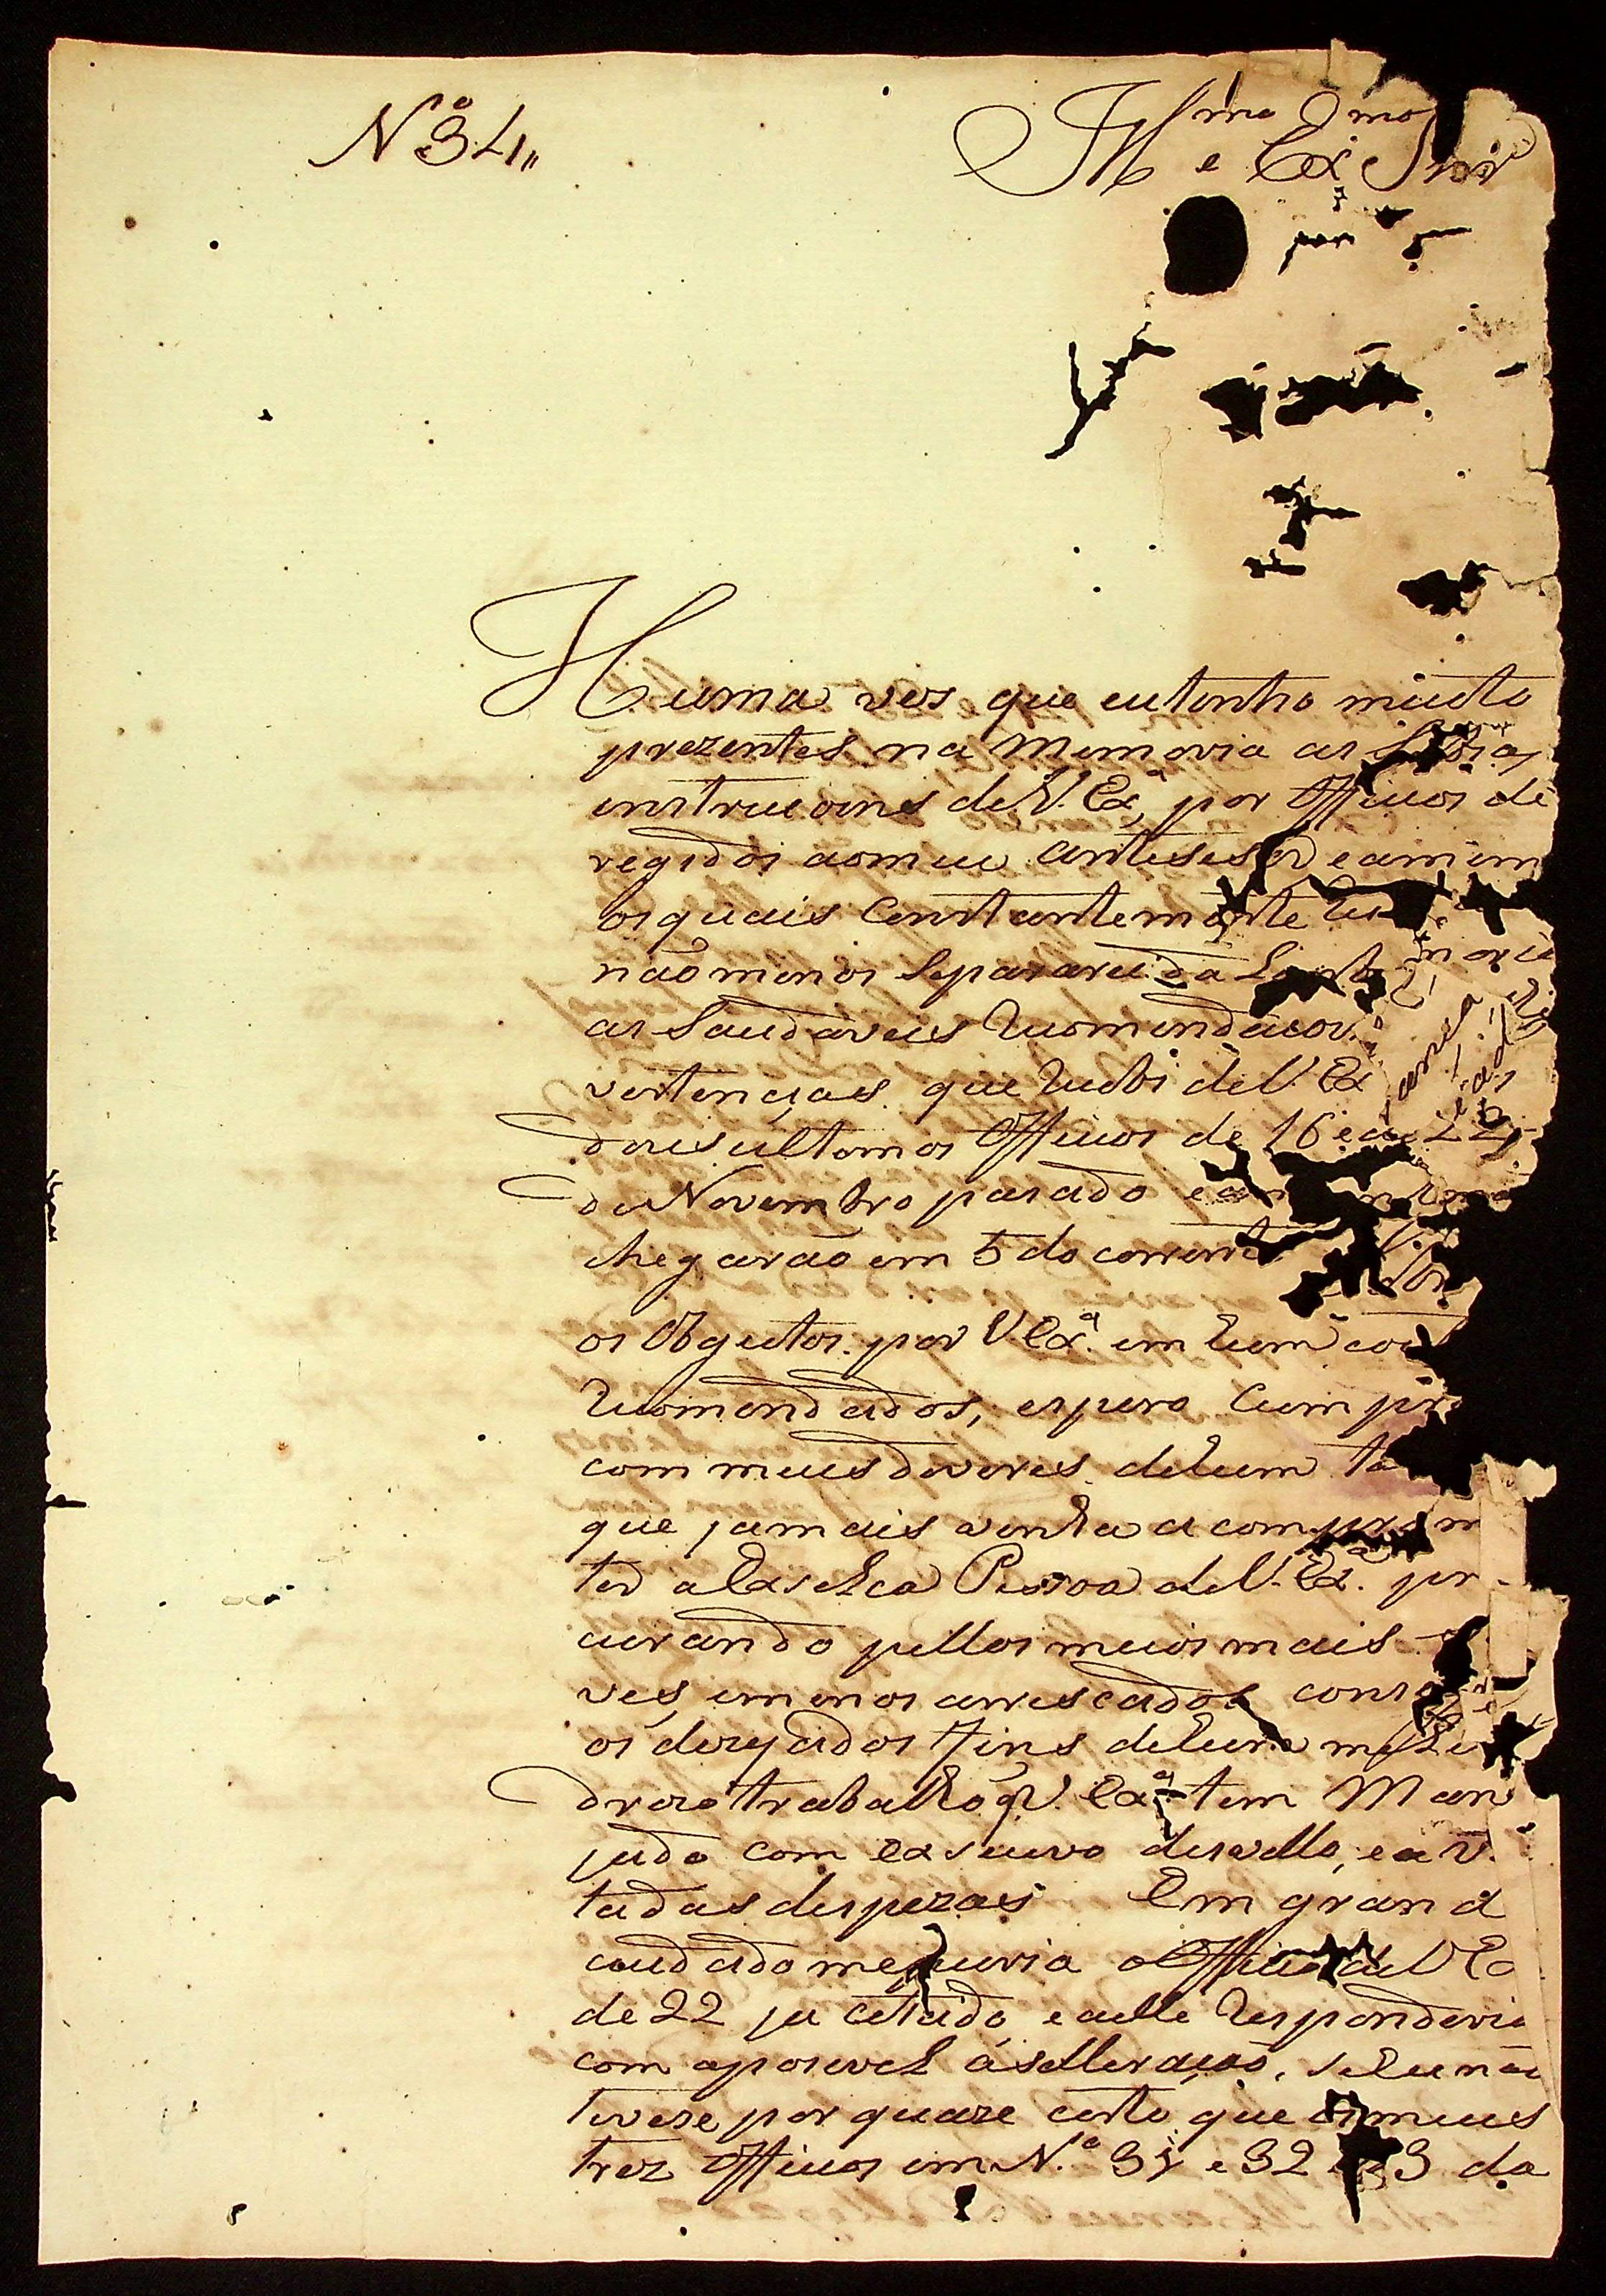 Nº 34,,
Illmo e Exmo Snr
Huma ves que eu tenho muito
prezentes na Memoria as
instrucoins de V. Exª, por Officios de
regidos ao meu antesesor e a mim
os quais Constantemente
não menos Separarei da
as Saudaveis Recomendacoi
vertencias que Recebi de V. Ex
dois ultomos Officios de 16 e a 22
de Novembro pasado e a
chegarão em 5 do corrente
os Obgectos por V Exª em hum e ou
Recomendados, espero Cumpri
com meus deveres de hum ta
que jamais venha a comprom
ter a Exselsa Pessoa de V. Exª. pr
curando pellos meios mais
ves, e menos arriscados conse
os dezejados fins de huma
drozo trabalho q. V. Exª tem Man
jado com exsecivo desvello, e a v
tadas despezas Em grand
cuidado me poria o Officio de V Ex
de 22 ja cetado, e a elle Responderia
com aposivel áselleração, se eu não
tivese por quaze certo que os meus
trez Officios em N.º 31 e 32 33 da